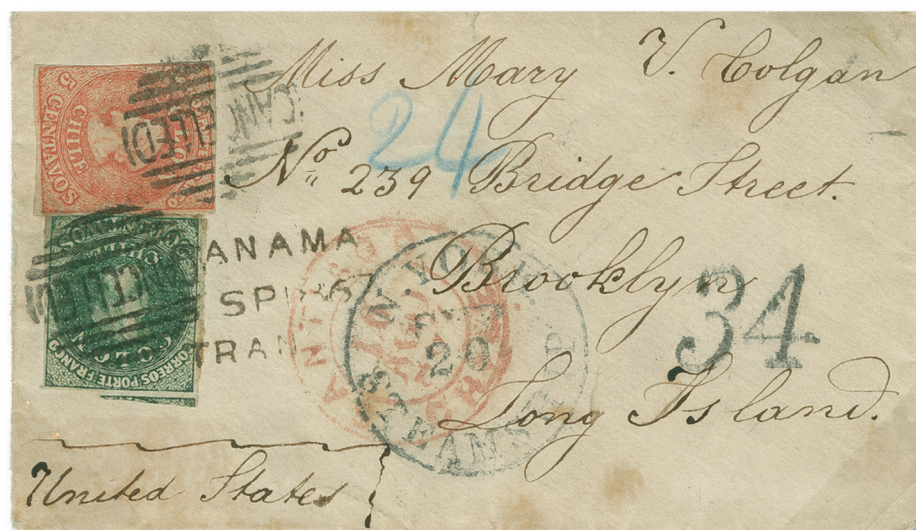 Miss Mary V. Colgan
24
No. 239 Bridge Street.
Brooklyn
34
Long Island.
United States
5 CENTAVOS
CHILE
COLON
CANCELLED
CANCELLED
CORREOS PORTE FRANCO
PANAMA
TRAN
N. YORK
20
STEAMSHIP